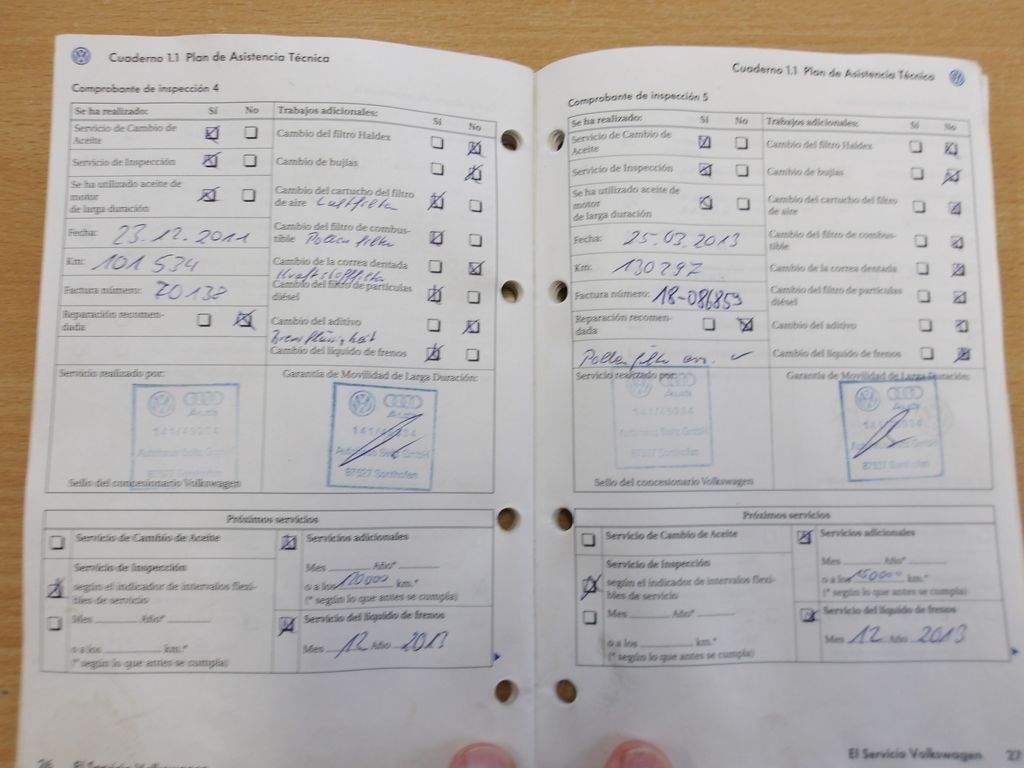 Cuaderno 1.1 Plan de Asistencia Técnica
Comprobante de inspección 4
Se ha realizado: Sí No
Servicio de Cambio de
Aceite
Servicio de Inspección
Se ha utilizado aceite de
motor
de larga duración
Fecha: 23.12.2011
Km: 101 534
Factura número: 70138
Reparación recomen-
dada
Trabajos adicionales: Sí No
Cambio del filtro Haldex
Cambio de bujías
Cambio del cartucho del filtro
de aire Luftfilter
Cambio del filtro de combus-
tible Pollenfilter
Cambio de la correa dentada
Kraftstofffilter
Cambio del filtro de partículas
diésel
Cambio del aditivo
Bremsflüssigkeit
Cambio del líquido de frenos
Servicio realizado por:
Garantía de Movilidad de Larga Duración:
Audi
Autohaus Seitz GmbH
87527 Sonthofen
Audi
Autohaus Seitz GmbH
87527 Sonthofen
Sello del concesionario Volkswagen
Próximos servicios
Servicio de Cambio de Aceite
Servicio de Inspección
según el indicador de intervalos flexi-
bles de servicio
Mes Año*
o a los km.*
(* según lo que antes se cumpla)
Servicios adicionales
Mes Año*
o a los 120000 km.*
(* según lo que antes se cumpla)
Servicio del líquido de frenos
Mes 12 Año 2013
26 El Servicio Volkswagen
Cuaderno 1.1 Plan de Asistencia Técnica
Comprobante de inspección 5
Se ha realizado: Sí No
Servicio de Cambio de
Aceite
Servicio de Inspección
Se ha utilizado aceite de
motor
de larga duración
Fecha: 25.03.2013
Km: 130297
Factura número: 18-086859
Reparación recomen-
dada
Pollenfilter ern. ✓
Trabajos adicionales: Sí No
Cambio del filtro Haldex
Cambio de bujías
Cambio del cartucho del filtro
de aire
Cambio del filtro de combus-
tible
Cambio de la correa dentada
Cambio del filtro de partículas
diésel
Cambio del aditivo
Cambio del líquido de frenos
Servicio realizado por:
Garantía de Movilidad de Larga Duración:
Audi
Autohaus Seitz GmbH
87527 Sonthofen
Audi
Autohaus Seitz GmbH
87527 Sonthofen
Sello del concesionario Volkswagen
Próximos servicios
Servicio de Cambio de Aceite
Servicio de Inspección
según el indicador de intervalos flexi-
bles de servicio
Mes Año*
o a los km.*
(* según lo que antes se cumpla)
Servicios adicionales
Mes Año*
o a los 150000 km.*
(* según lo que antes se cumpla)
Servicio del líquido de frenos
Mes 12 Año 2013
El Servicio Volkswagen 27